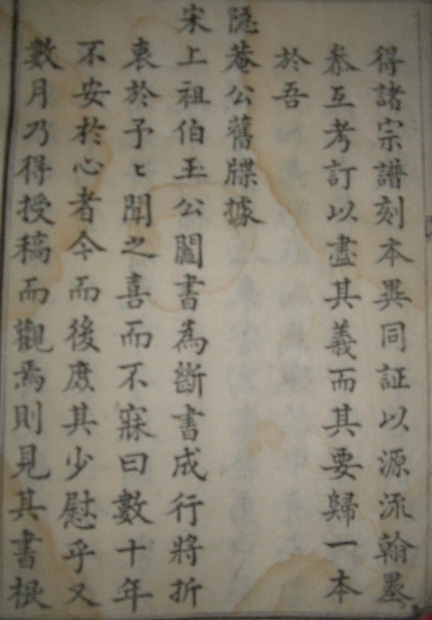 得諸宗譜刻本異同証以源流翰墨
叅互考訂以盡其義而其要歸一本
於吾
隱菴公舊牒據
宋上祖伯玉公闔書為斷書成行將折
衷於予〻聞之喜而不寐曰數十年
不安於心者今而後庶其少慰乎又
數月乃得授稿而觀焉則見其書根